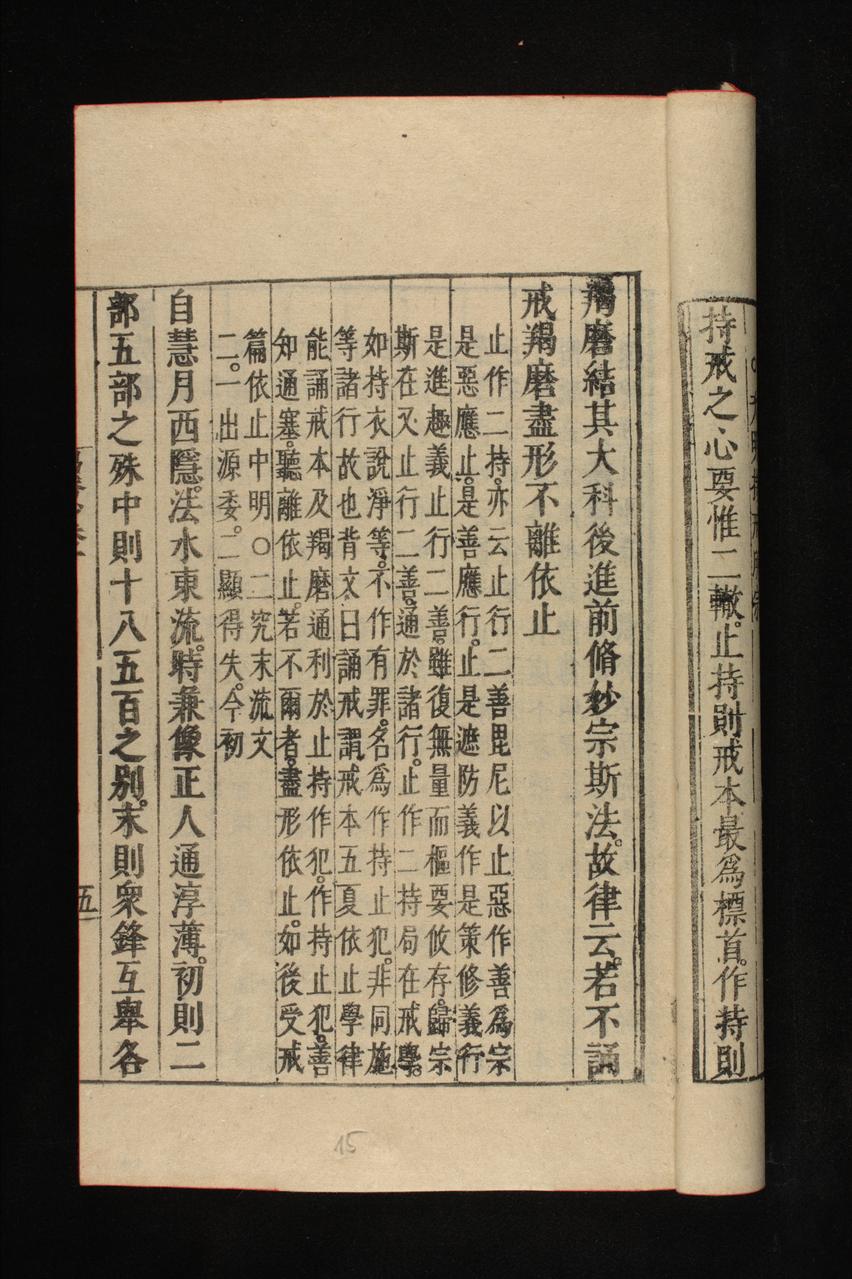 持戒之心要惟二轍。止持則戒本最爲標首。作持則
羯磨結其大科後進前脩妙宗斯法。故律云。若不誦
戒羯磨盡形不離依止
止作二持。亦云止行二善毘尼以止惡作善爲宗
是惡應止。是善應行。止是遮防義作是策修義行
是進趣義止行二善。雖復無量而樞要攸存。歸宗
斯在又止行二善。通於諸行。止作二持局在戒學。
如持衣說淨等。不作有罪。名爲作持止犯。非同施
等諸行故也背文曰誦戒謂戒本五夏依止學律
能誦戒本及羯磨通利於止持作犯。作持止犯。善
知通塞。聽離依止。若不爾者。盡形依止。如後受戒
篇依止中明〇二究末流文
二。一出源委。二顯得失。今初
自慧月西隱。法水東流。時兼像正人通淳薄。初則二
部五部之殊中則十八五百之別。末則衆鋒互舉各
五
15